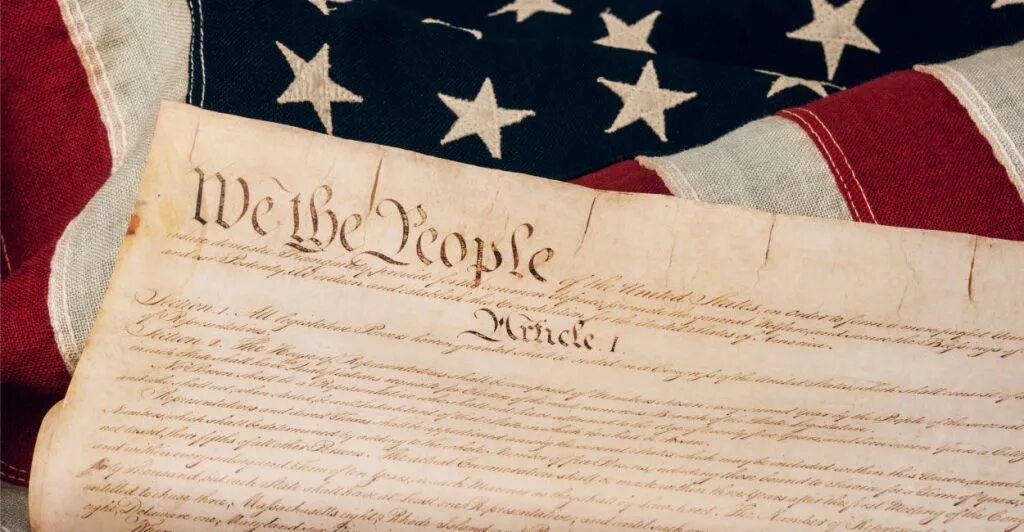 We the People of the United States, in Order to form a more perfect
insure domestic Tranquility, provide for the common defence, promote the general Welfare, and secure the Blessings of
and our Posterity, do ordain and establish this Constitution for the United States of America.
Article. I
Section. 1. All legislative Powers herein granted shall be vested in a Congress of the United States, which shall consist of
of Representatives.
Section. 2. The House of Representatives shall be composed of Members chosen every second Year by the People of the several
State shall have the Qualifications requisite for Electors of the most numerous Branch of the State Legislature.
No Person shall be a Representative who shall not have attained to the Age of twenty five Years, and been seven Years a
and who shall not, when elected, be an Inhabitant of that State in which he shall be chosen.
Representatives and direct Taxes shall be apportioned among the several States which may be included within this Union,
Numbers, which shall be determined by adding to the whole Number of free Persons, including those bound to Service for a Term of Years,
not taxed, three fifths of all other Persons. The actual Enumeration shall be made within three Years after the first Meeting of the
and within every subsequent Term of ten Years, in such Manner as they shall by Law direct. The Number of
thirty Thousand, but each State shall have at Least one Representative; and until such
entitled to chuse three, Massachusetts eight, Rhode Island
eight, Delaware one, Maryland